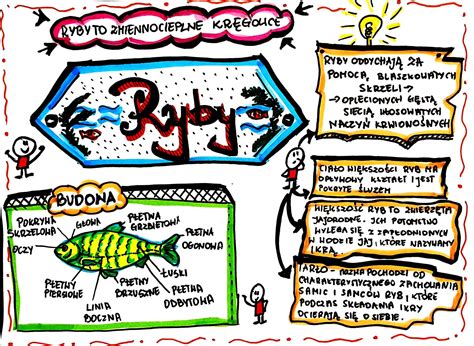 RYBY TO ZMIENNOCIEPLNE KRĘGOWCE
Ryby
RYBY ODDYCHAJĄ ZA
POMOCĄ BLASZKOWATYCH
SKRZELI →
→ OPLECIONYCH GĘSTĄ
SIECIĄ WŁOSOWATYCH
NACZYŃ KRWIONOŚNYCH
CIAŁO WIĘKSZOŚCI RYB MA
OPŁYWOWY KSZTAŁT I JEST
POKRYTE ŚLUZEM
WIĘKSZOŚĆ RYB TO ZWIERZĘTA
JAJORODNE. ICH POTOMSTWO
WYLĘGA SIĘ Z ZAPŁODNIONYCH
W WODZIE JAJ, KTÓRE NAZYWAMY
IKRĄ.
TARŁO - NAZWA POCHODZI OD
CHARAKTERYSTYCZNEGO ZACHOWANIA
SAMIC I SAMCÓW RYB, KTÓRE
PODCZAS SKŁADANIA IKRY
OCIERAJĄ SIĘ O SIEBIE.
BUDOWA
POKRYWA
SKRZELOWA
GŁOWA
PŁETWA
GRZBIETOWA
PŁETWA
OGONOWA
OCZY
ŁUSKI
PŁETWY
PIERSIOWE
LINIA
BOCZNA
PŁETWY
BRZUSZNE
PŁETWA
ODBYTOWA